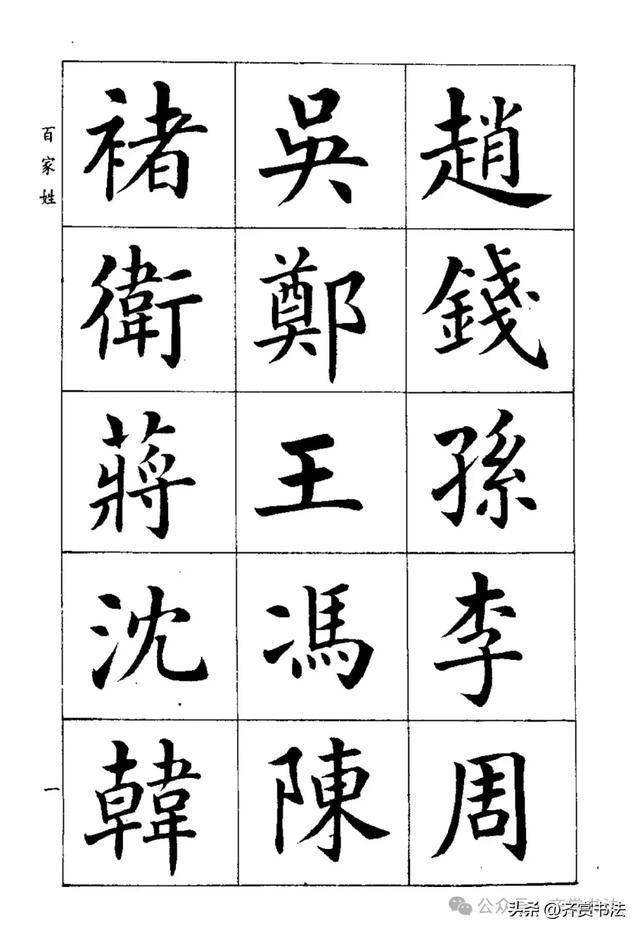 百家姓
趙錢孫李周
吳鄭王馮陳
褚衛蔣沈韓
一
公众号·齐赏书法
头条@齐赏书法